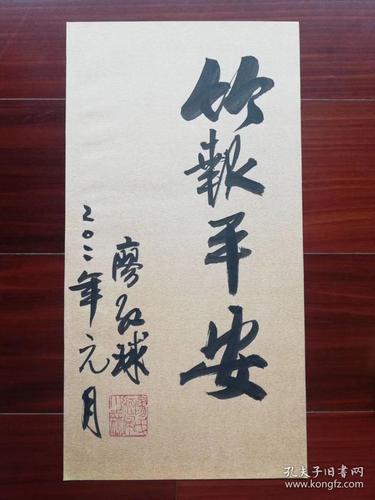 竹報平安
廖红球
二〇〇二年元月
孔夫子旧书网
kongfz.com